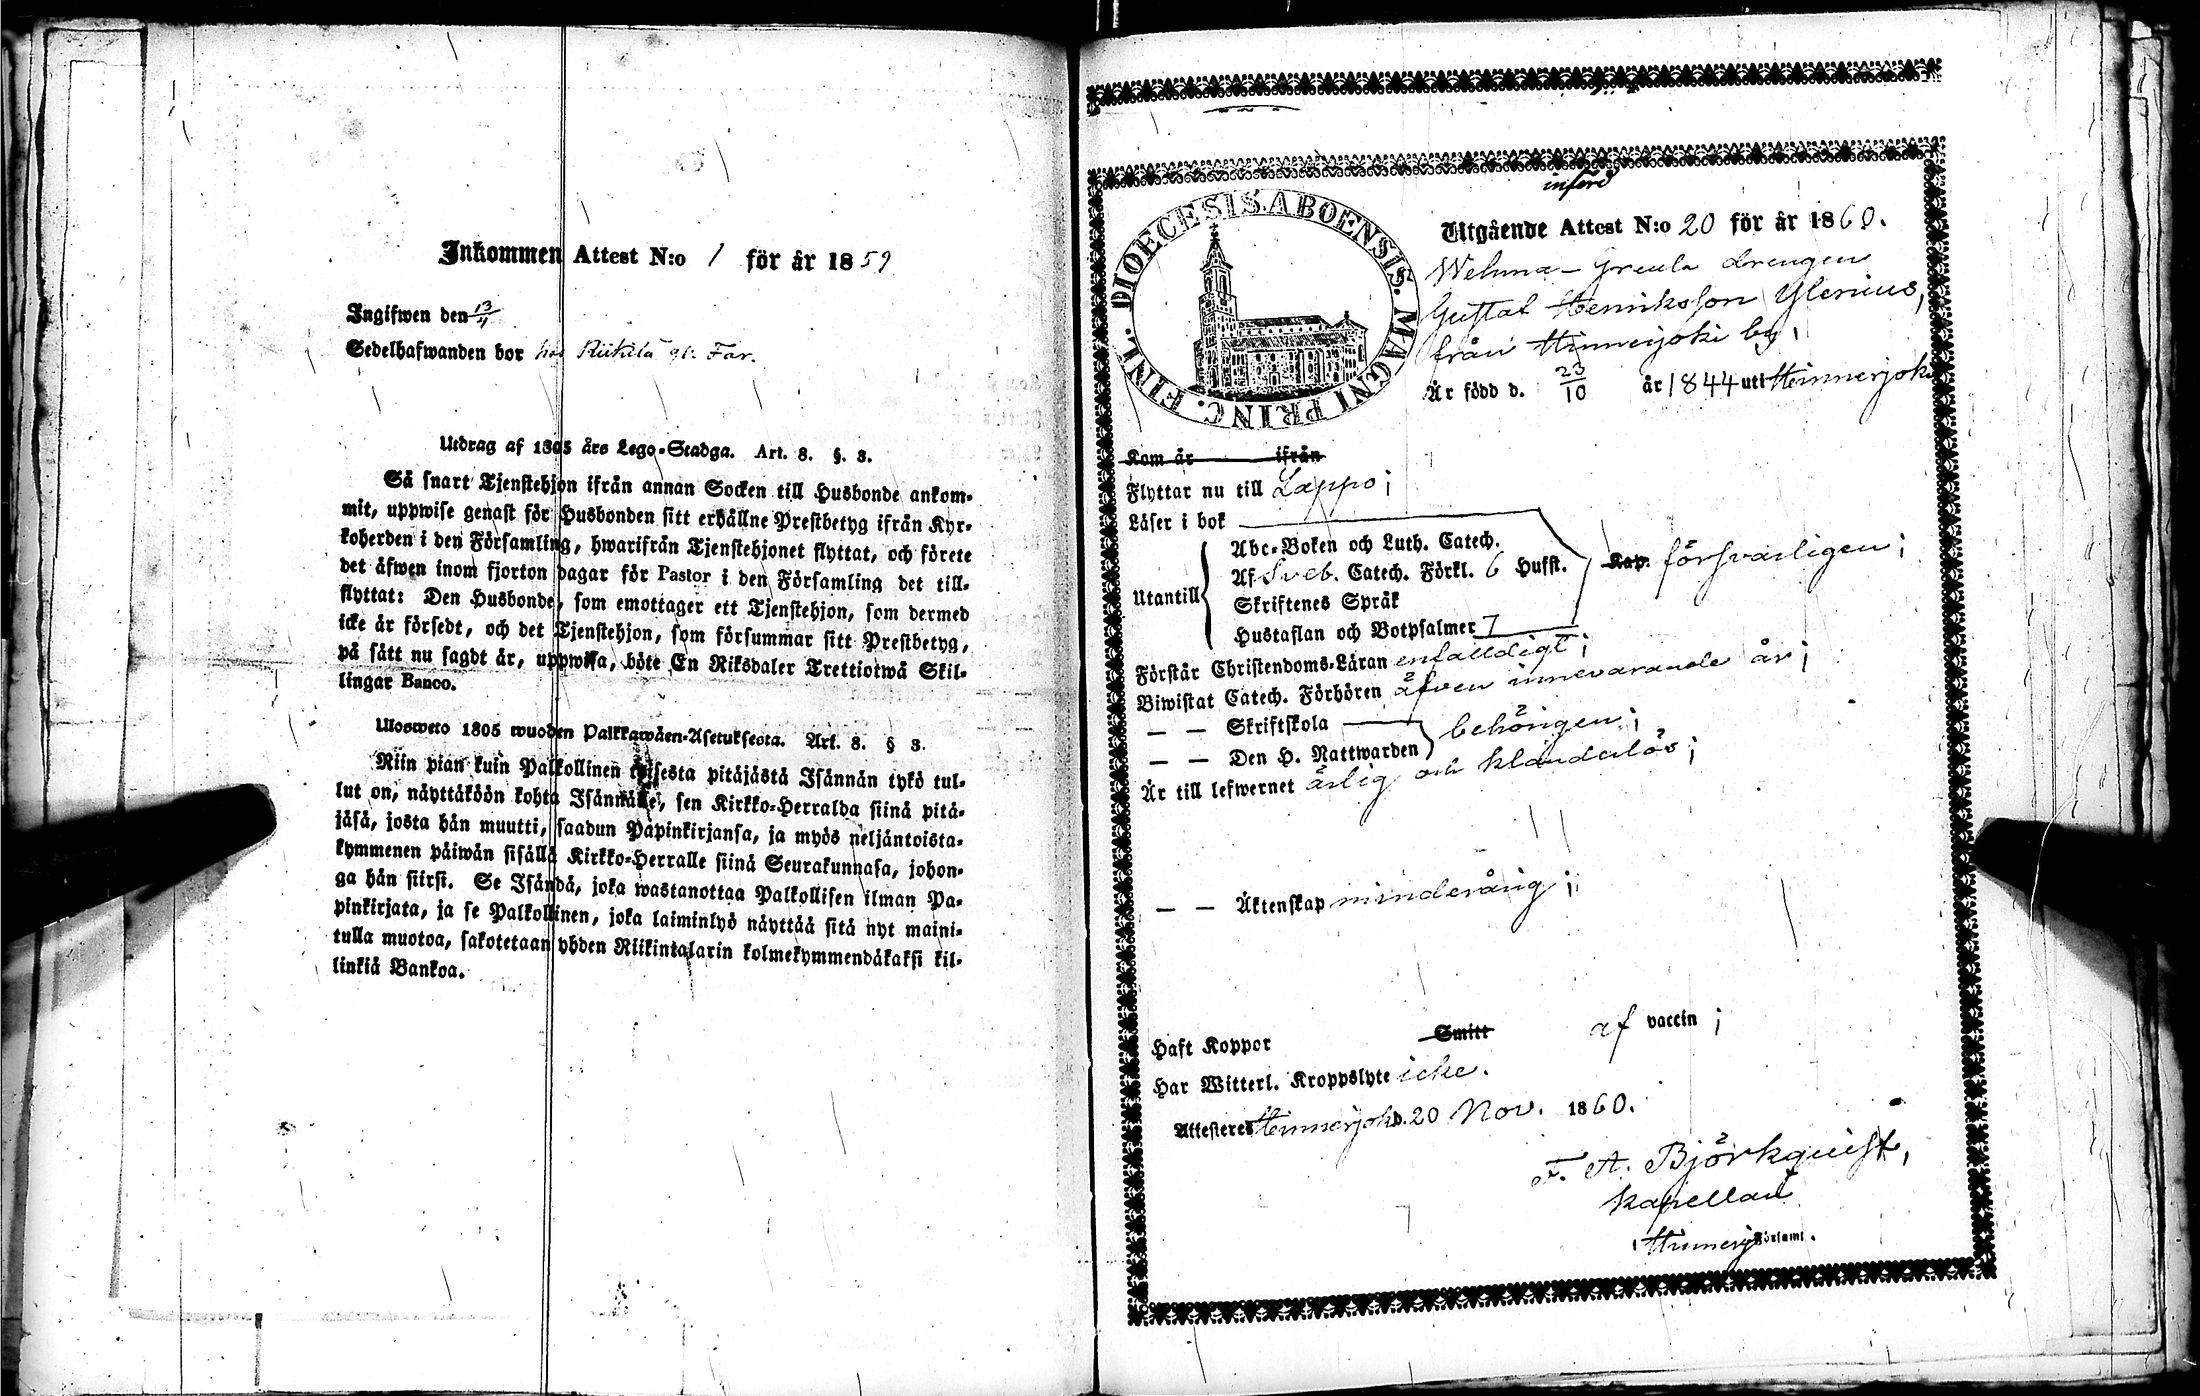 Inkommen Attest N:o 1 för år 1859
Ingifwen den 13/4
Sedelhafwanden bor hos Riikilä Far.
Utdrag af 1805 års Lego-Stadga. Art. 8. §. 3.
Så snart Tjenstehjon ifrån annan Socken till Husbonde ankom-
mit, uppwise genast för Husbonden sitt erhållne Prestbetyg ifrån Kyr-
koherden i den Församling, hwarifrån Tjenstehjonet flyttat, och förete
det äfwen inom fjorton dagar för Pastor i den Församling det till-
flyttat: Den Husbonde, som emottager ett Tjenstehjon, som dermed
icke är försedt, och det Tjenstehjon, som försummar sitt Prestbetyg,
på sätt nu sagdt är, uppwisa, böte En Riksdaler Trettiotwå Skil-
lingar Banco.
Ulosweto 1805 wuoden Palkkawäen-Asetuksesta. Art. 8. § 3.
Niin pian kuin Palkollinen toisesta pitäjästä Isännän tykö tul-
lut on, näyttäköön kohta Isännälle, sen Kirkko-Herralda siinä pitä-
jäsä, josta hän muutti, saadun Papinkirjansa, ja myös neljäntoista-
kymmenen päiwän sisällä Kirkko-Herralle siinä Seurakunnasa, johon-
ga hän siirsi. Se Isändä, joka wastanottaa Palkollisen ilman Pa-
pinkirjata, ja se Palkollinen, joka laiminlyö näyttää sitä nyt maini-
tulla muotoa, sakotetaan yhden Riikintalarin kolmekymmendäkaksi kil-
linkiä Bankoa.
införd
DIOECESIS. ABOENSIS. MAGNI PRINC. FINL.
Utgående Attest N:o 20 för år 1860.
Wehma-Greula drengen
Gustaf Henriksson Ylenius,
från Hinnerjoki by,
Är född d. 23/10 år 1844 uti Hinnerjoki
Kom år ifrån
Flyttar nu till Lappo;
Läser i bok
Utantill
Abc-Boken och Luth. Catech.
Af Sveb. Catech. Förkl. 6 Hufst. Kap. försvarligen;
Skriftenes Språk
Hustaflan och Botpsalmer 7
Förstår Christendoms-Läran enfalldigt;
Biwistat Catech. Förhören äfven innevarande år;
— — Skriftskola
behörigen;
— — Den H. Nattwarden
Är till lefwernet ärlig och klanderlös;
— — Äktenskap minderårig;
Haft Koppor Smitt af vaccin;
Har Witterl. Kroppslyte icke.
Attesteres Hinnerjoki d. 20 Nov. 1860.
F. A. Björkquist,
Kapellan i
Hinnerj. Församl.